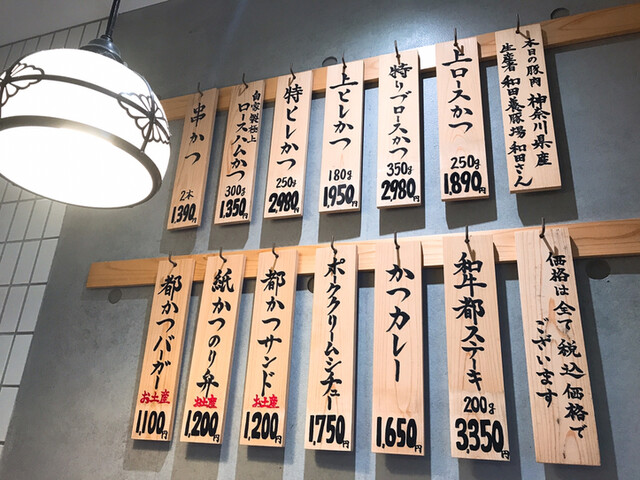 本日の豚肉 神奈川県産
生産者 和田養豚場 和田さん
上ロースかつ
250g
1,890円
特リブロースかつ
350g
2,980円
上ヒレかつ
180g
1,950円
特ヒレかつ
250g
2,980円
自家製極上
ロースハムかつ
300g
1,350円
串かつ
2本
1,390円
価格は全て税込価格で
ございます
和牛都ステーキ
200g
3,350円
かつカレー
1,650円
ポーククリームシチュー
1,750円
都かつサンド
お土産
1,200円
紙かつのり弁
お土産
1,200円
都かつバーガー
お土産
1,100円